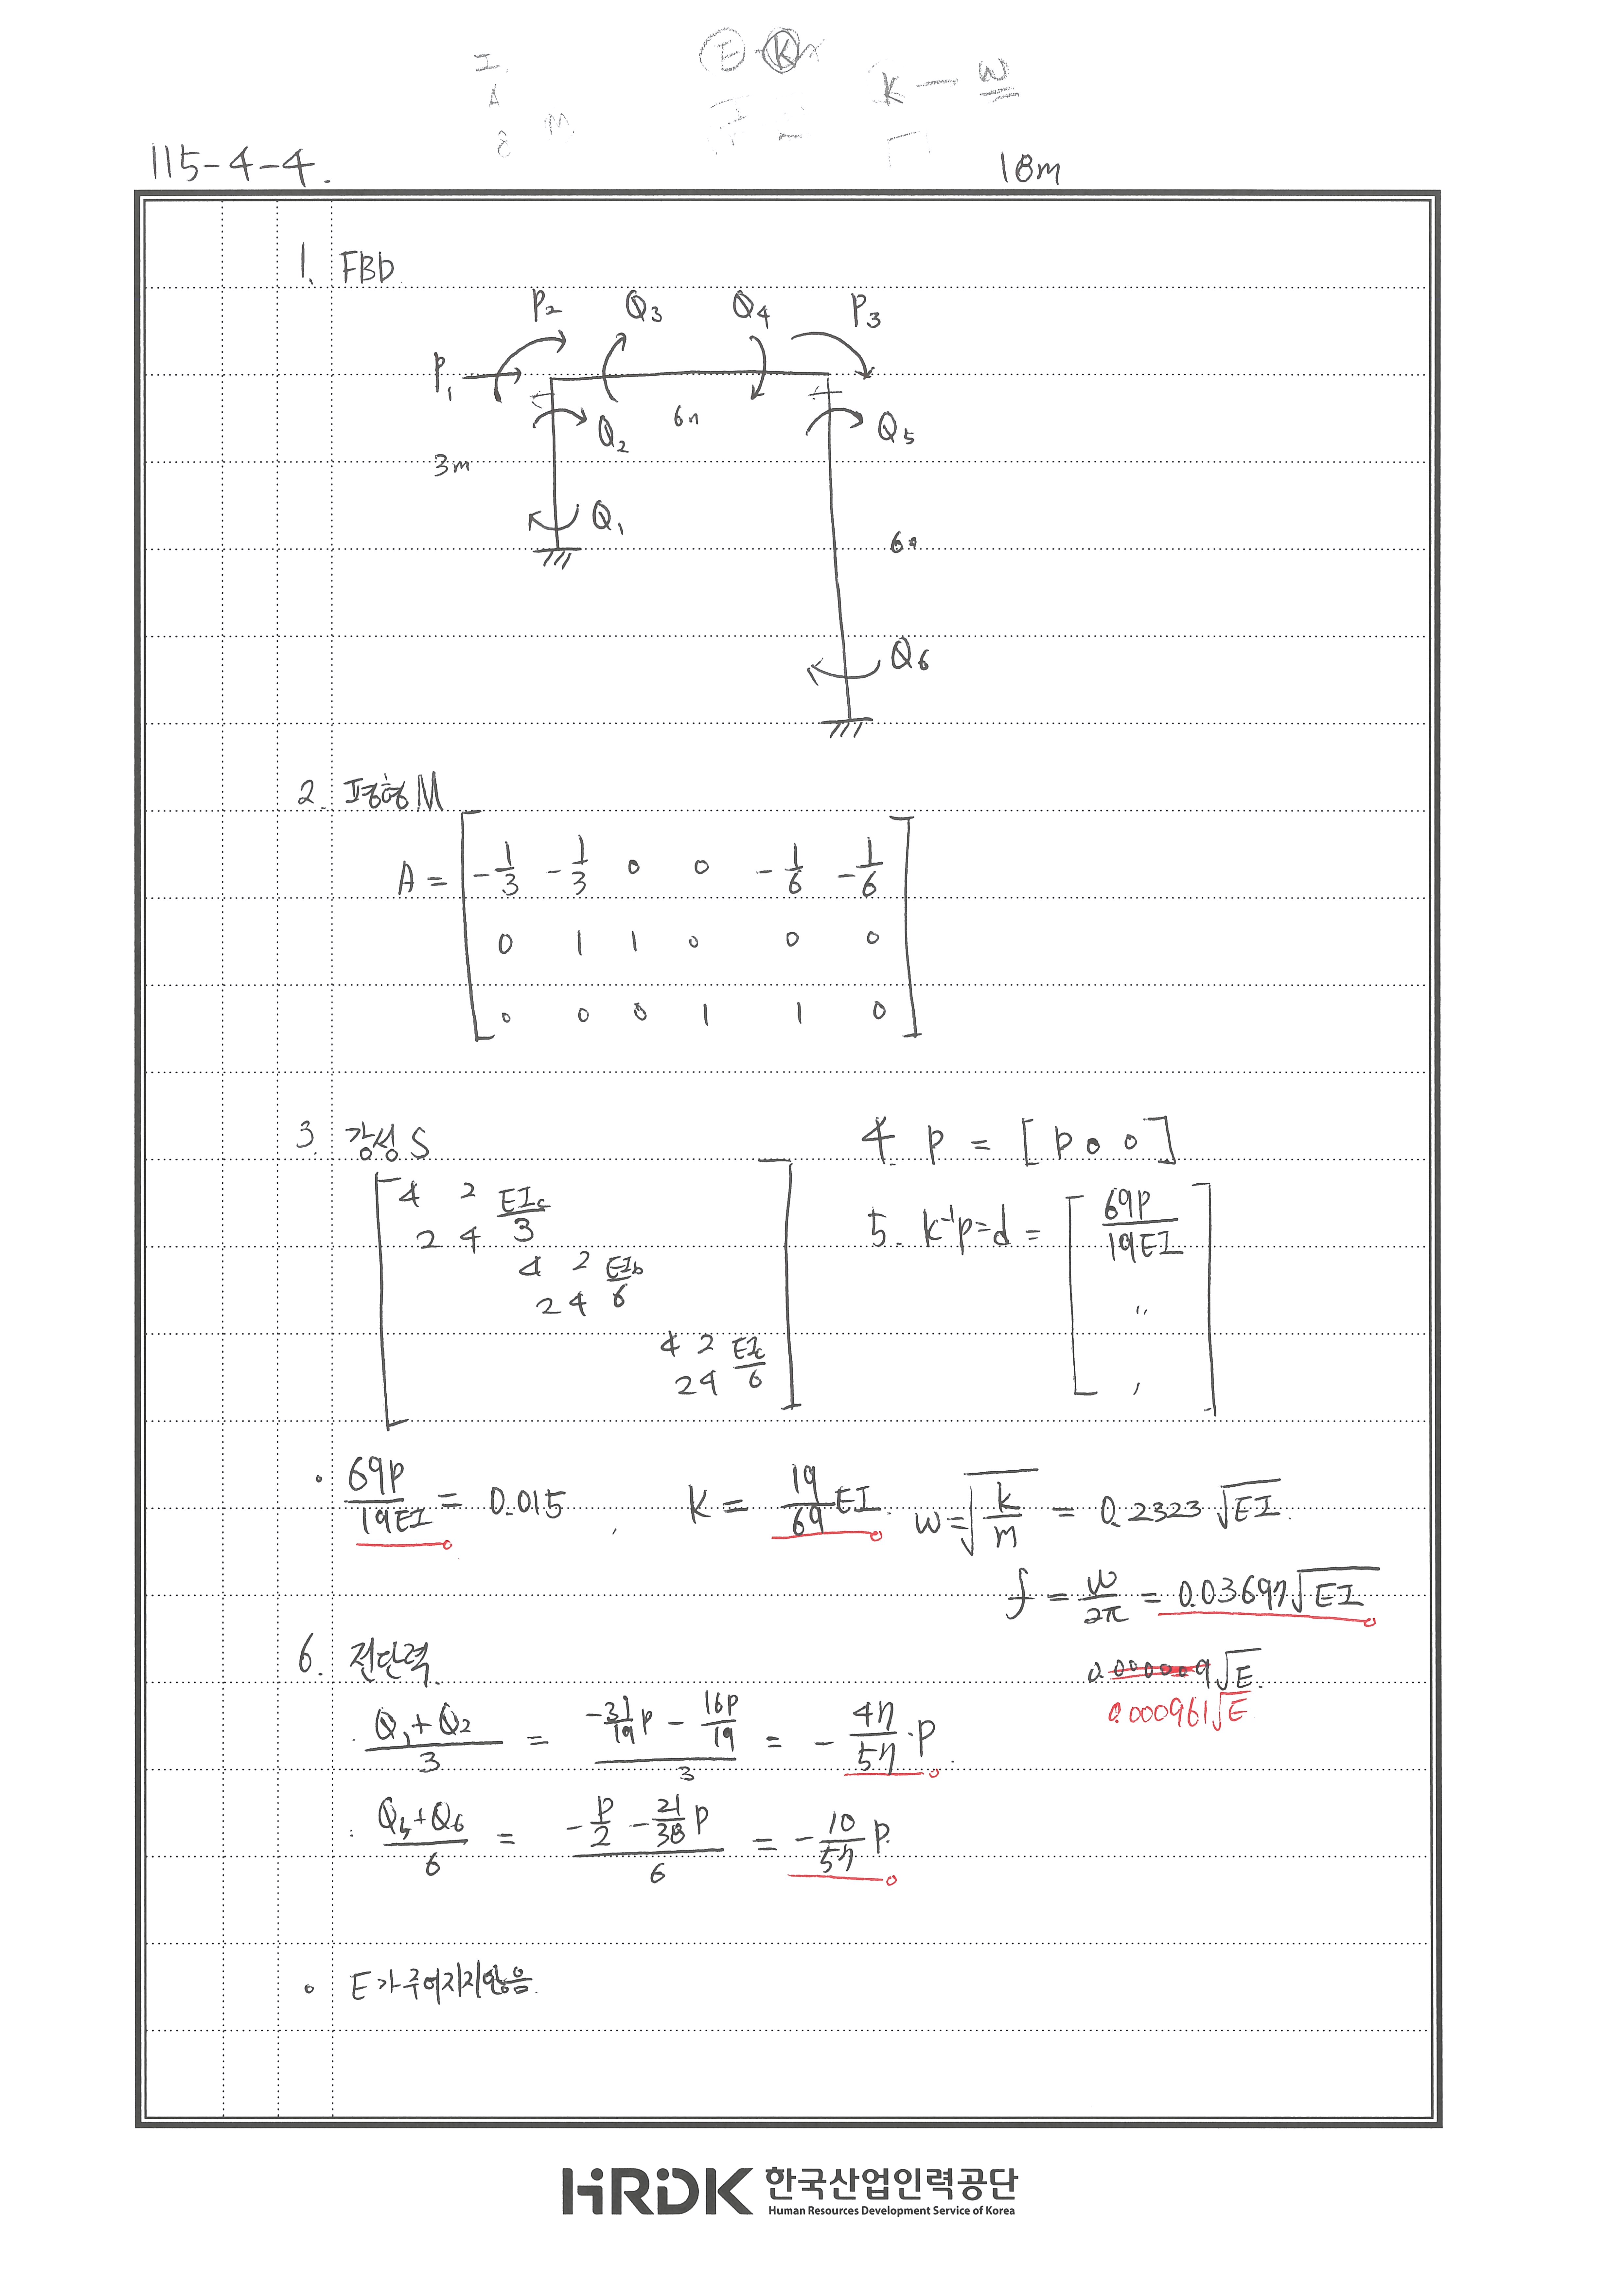 I. E K
A K — w
8 M
115-4-4. 18m
1. FBD
P₂ Q₃ Q₄ P₃
P₁
6m
Q₂ Q₅
3m
Q₁
6m
Q₆
2. 평형 M
A = [ -1/3 -1/3 0 0 -1/6 -1/6
0 1 1 0 0 0
0 0 0 1 1 0 ]
3. 강성 S
[ 4 2
2 4 EIc/3
4 2
2 4 EIb/6
4 2
2 4 EIc/6 ]
4. P = [ P 0 0 ]
5. K⁻¹P = d = [ 69P/19EI
〃
, ]
· 69P/19EI = 0.015 , K = 19/69 EI. w = √(k/m) = 0.2323 √EI.
f = w/2π = 0.03697√EI
0.000961√E
6. 전단력
· (Q₁+Q₂)/3 = (-31/19 P - 16P/19)/3 = -47/57 · P.
· (Q₅+Q₆)/6 = (-P/2 - 21/38 P)/6 = -10/57 P.
○ E가 주어지지 않음.
HRDK 한국산업인력공단
Human Resources Development Service of Korea